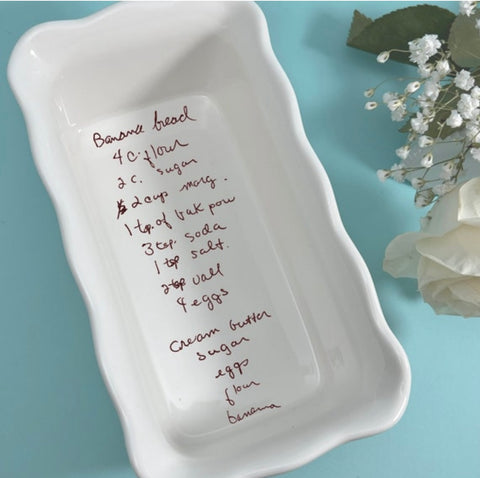 Banana bread
4 c. flour
2 c. sugar
2 cup marg.
1 tsp. of bak pow
3 tsp. soda
1 tsp salt.
2 tsp vall
4 eggs
Cream butter
sugar
eggs
flour
banana